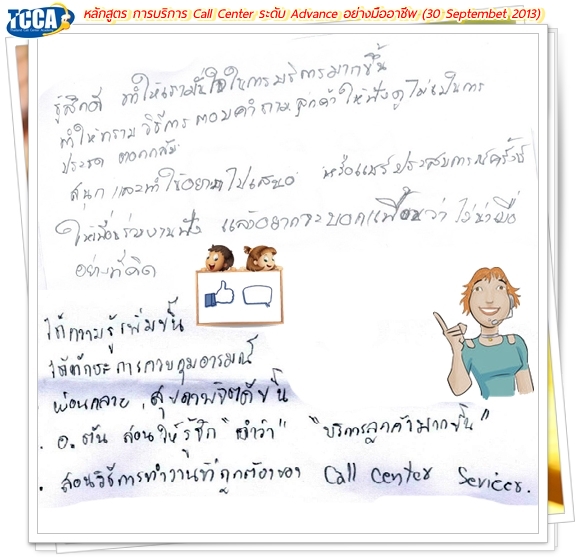 TCCA
Thailand Call Center Academy
หลักสูตร การบริการ Call Center ระดับ Advance อย่างมืออาชีพ (30 Septembet 2013)
รู้สึกดี ทำให้เรามั่นใจในการบริการมากขึ้น
ทำให้ทราบวิธีการตอบคำถามลูกค้าให้ฟังดูไม่เป็นการ
ประชด ตอกกลับ
สนุก และทำให้อยากไปเสนอ หรือแชร์ประสบการณ์ครั้งนี้
ให้เพื่อนร่วมงานฟัง แล้วอยากจะบอกเพื่อนว่า ไม่น่าเบื่อ
อย่างที่คิด
ได้ความรู้เพิ่มขึ้น
ได้ทักษะการควบคุมอารมณ์
ผ่อนคลาย สุขภาพจิตดีขึ้น
. อ. ต้น สอนให้รู้จัก "คำว่า" "บริการลูกค้ามากขึ้น"
. สอนวิธีการทำงานที่ถูกต้องของ Call Center Sevices.